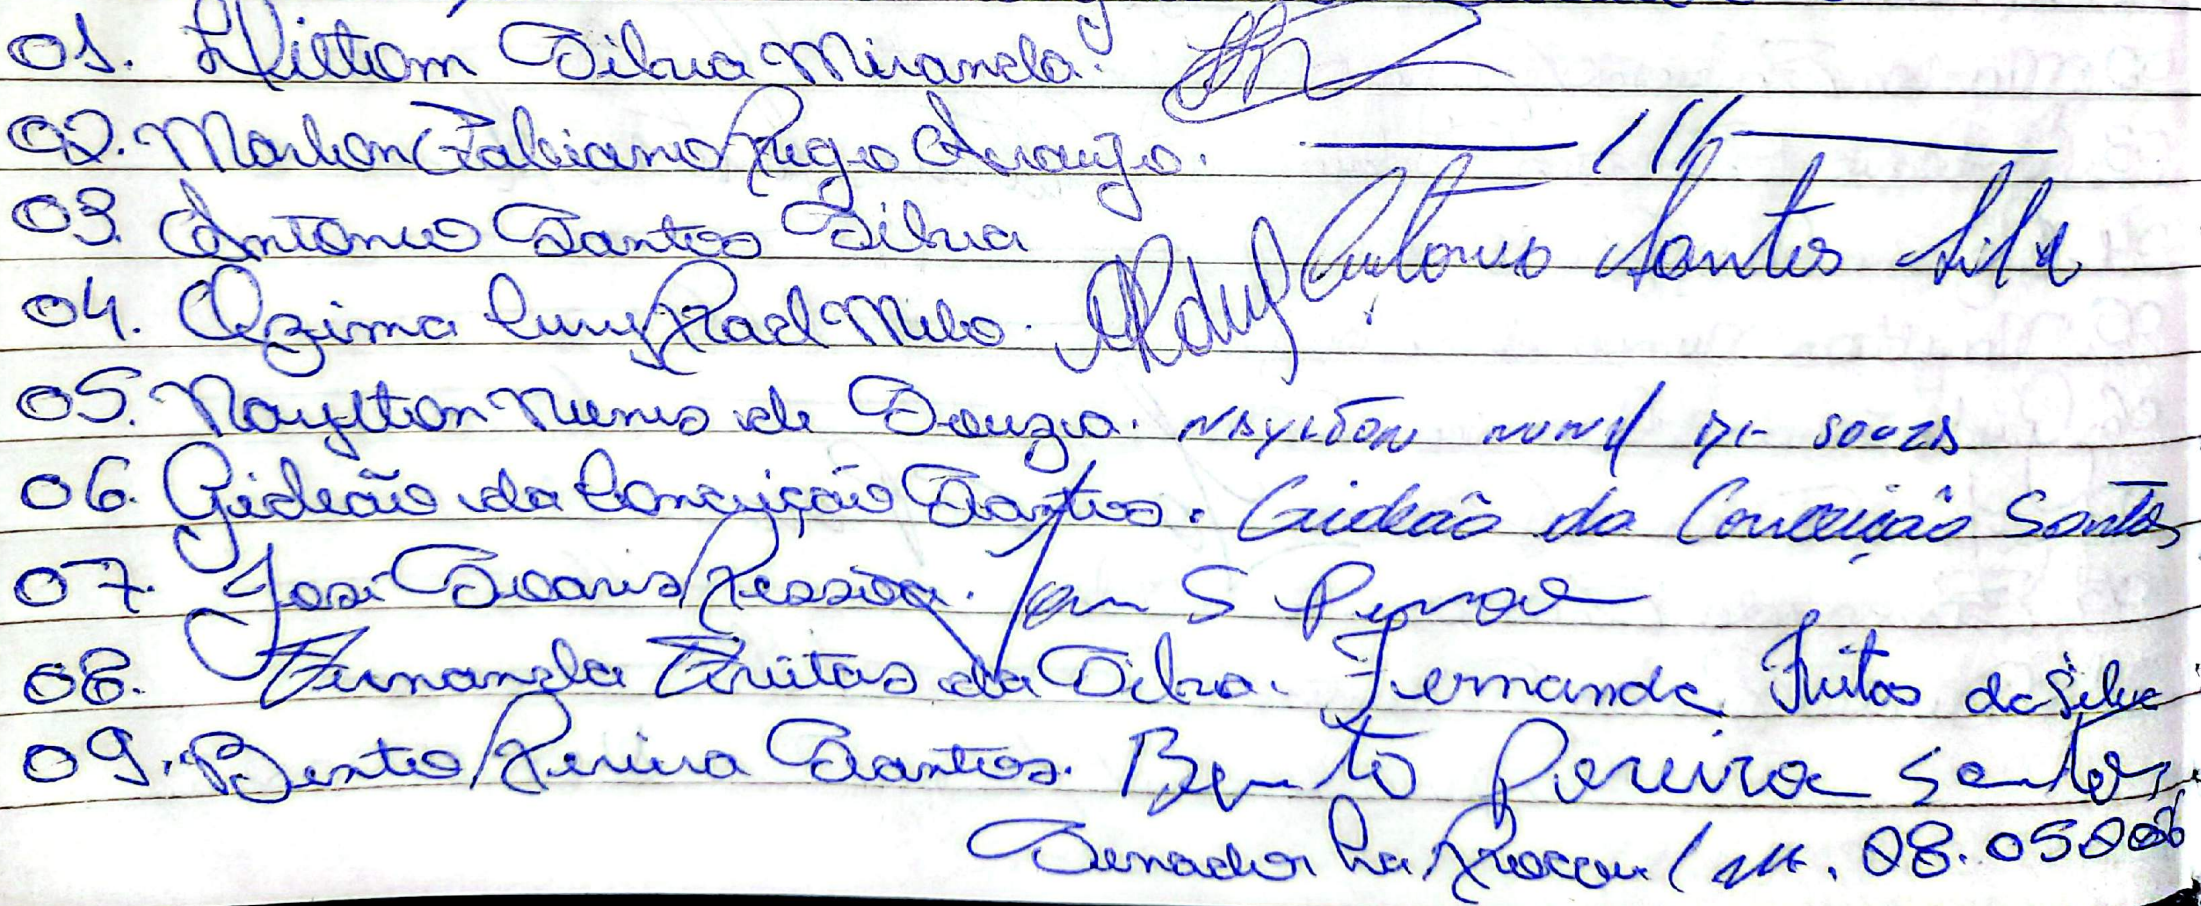 01. Wiltom Silva Miranda.
02. Marlon Fabiano Rego Araujo.
03. Antonio Santos Silva Antonio Santos Silva
04. Ozima Cury Rad Melo.
05. Naylton Nunes de Souza. NAYLTON NUNES DE SOUZA
06. Gideão da Conceição Santos. Gideão da Conceição Santos
07. José Soares Pessoa. S Pessoa
08. Fernanda Freitas da Silva. Fernanda Freitas da Silva
09. Bento Pereira Santos. Bento Pereira Santos
Senador La Rocque / MA. 08.05